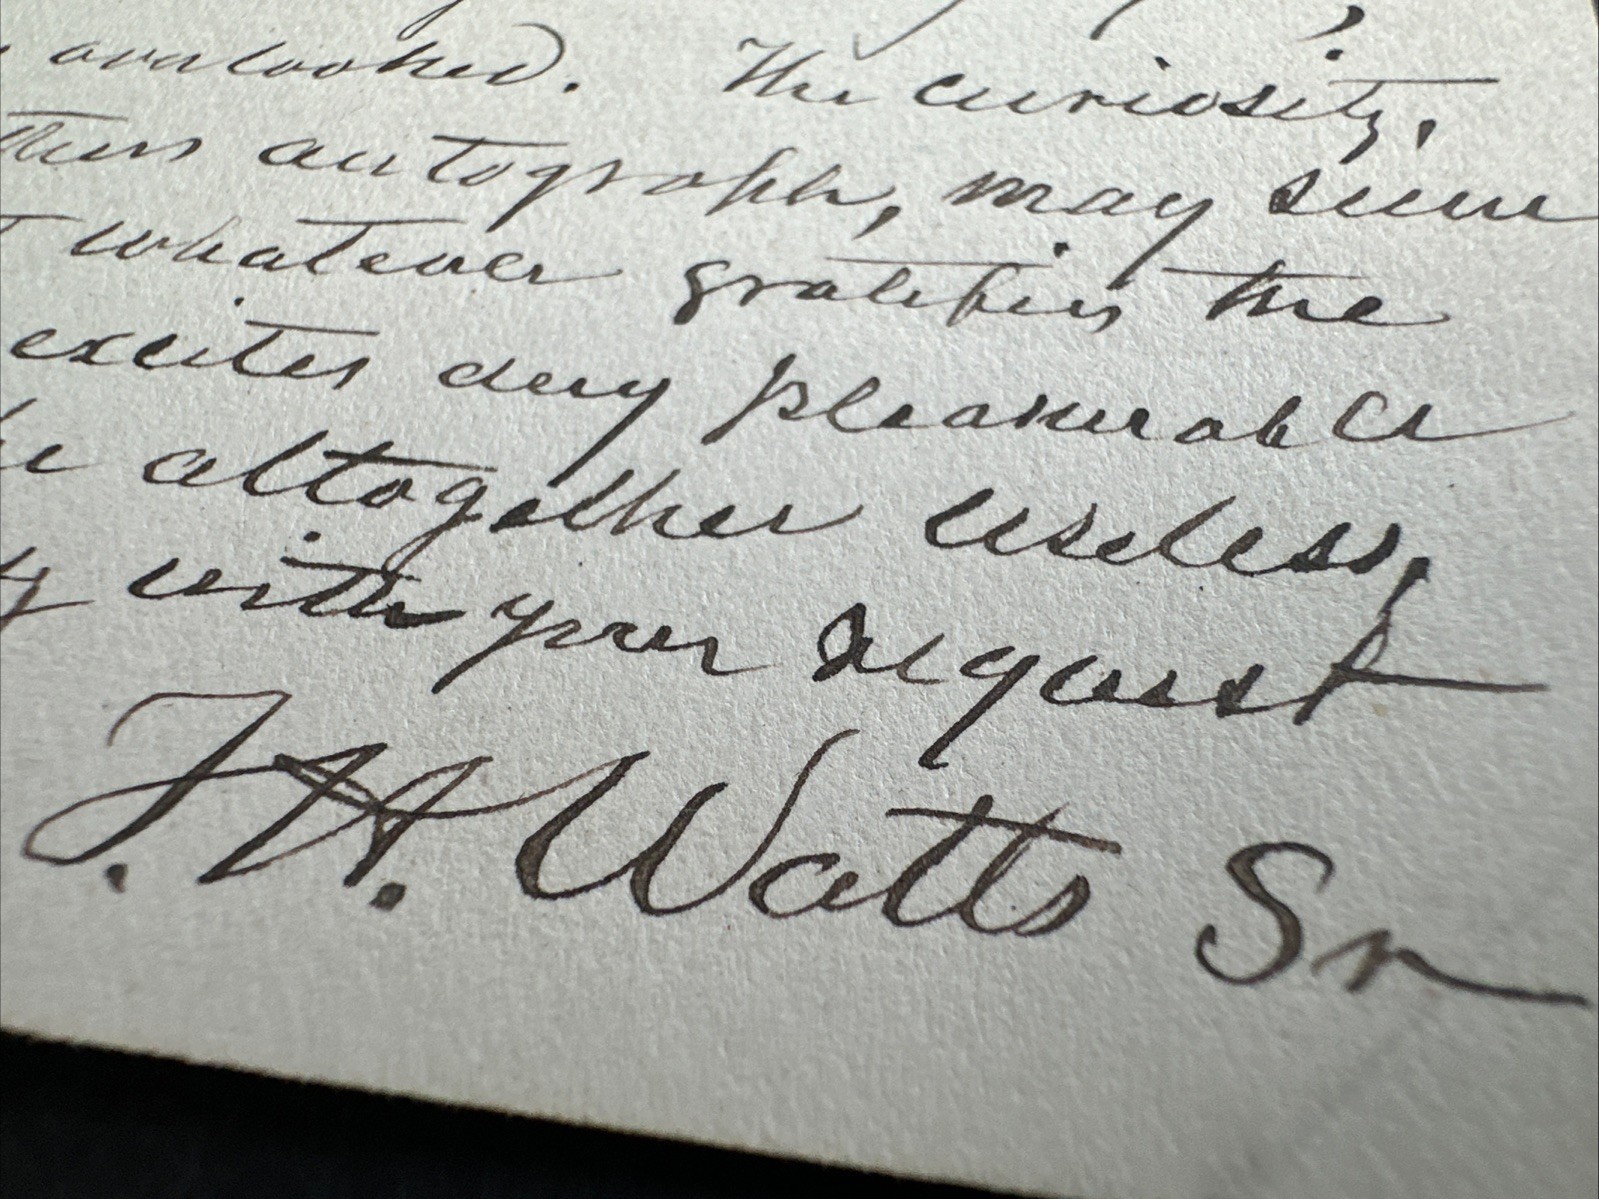 overlooked. The curiosity,
autograph, may seem
whatever gratifies the
excites any pleasurable
altogether useless,
with your request
J. H. Watts Sr